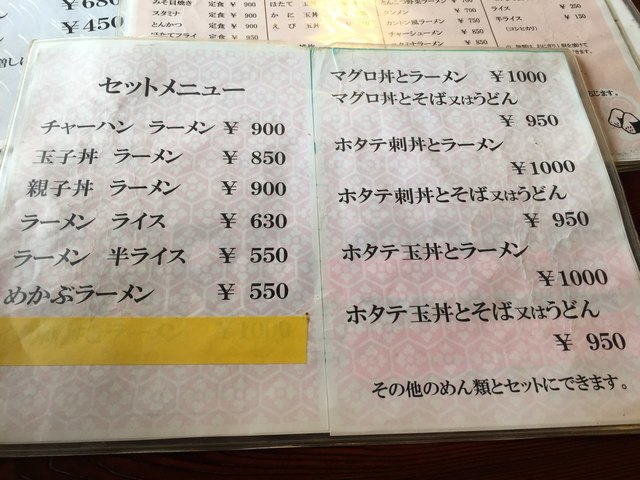 ¥680
¥450
みそ目焼き 定食 ¥ 900
スタミナ 定食 ¥ 900
とんかつ 定食 ¥ 900
ほたてフライ 定食 ¥ 950
ほたて 玉丼
かに 玉丼
えび 玉丼
¥ 700
¥ 750
カントン風ラーメン ¥ 750
チャーシューメン ¥ 750
ライス ¥ 250
半ライス ¥ 150
(コシヒカリ)
セットメニュー
チャーハン ラーメン ¥ 900
玉子丼 ラーメン ¥ 850
親子丼 ラーメン ¥ 900
ラーメン ライス ¥ 630
ラーメン 半ライス ¥ 550
めかぶラーメン ¥ 550
マグロ丼とラーメン ¥1000
マグロ丼とそば又はうどん
¥ 950
ホタテ刺丼とラーメン
¥1000
ホタテ刺丼とそば又はうどん
¥ 950
ホタテ玉丼とラーメン
¥1000
ホタテ玉丼とそば又はうどん
¥ 950
その他のめん類とセットにできます。